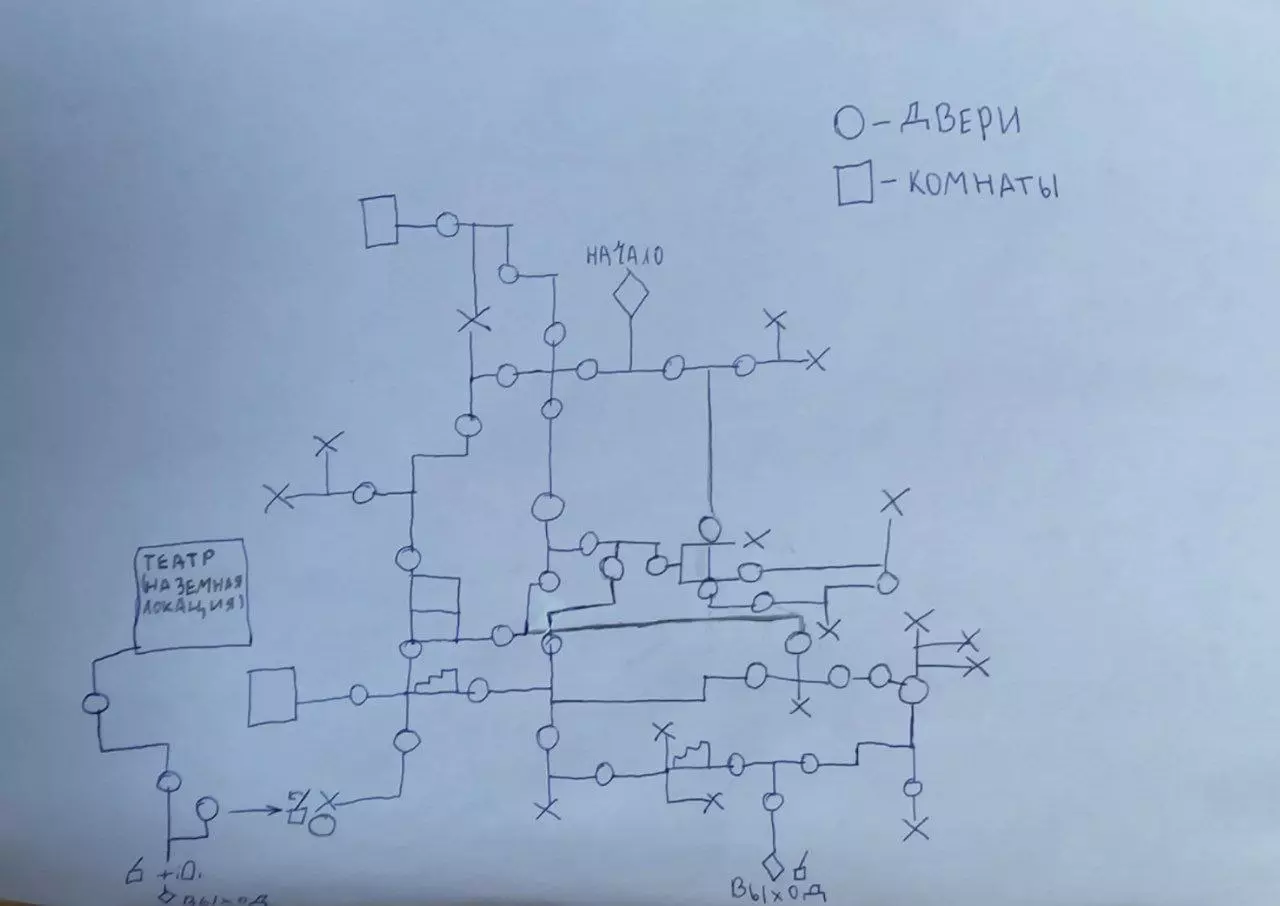 ○ - ДВЕРИ
□ - КОМНАТЫ
НАЧАЛО
ТЕАТР
(НАЗЕМНАЯ
ЛОКАЦИЯ)
ВЫХОД
ВЫХОД